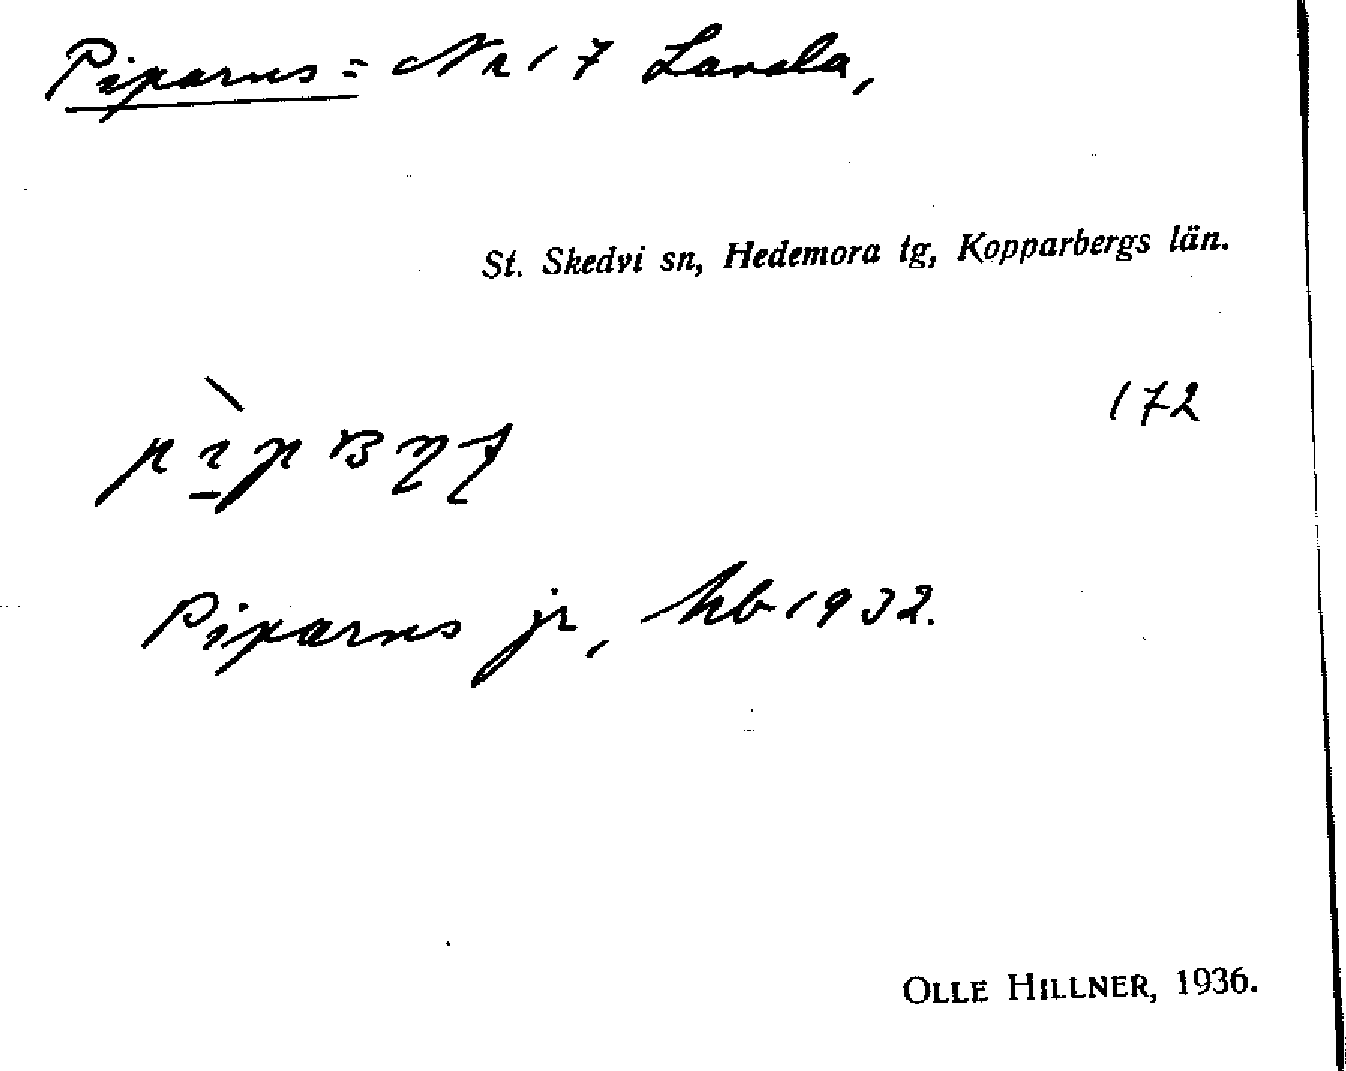 Piparns = Nr 17 Landa,
St. Skedvi sn, Hedemora tg, Kopparbergs län.
172
Piparns jr, hb 1932.
OLLE HILLNER, 1936.